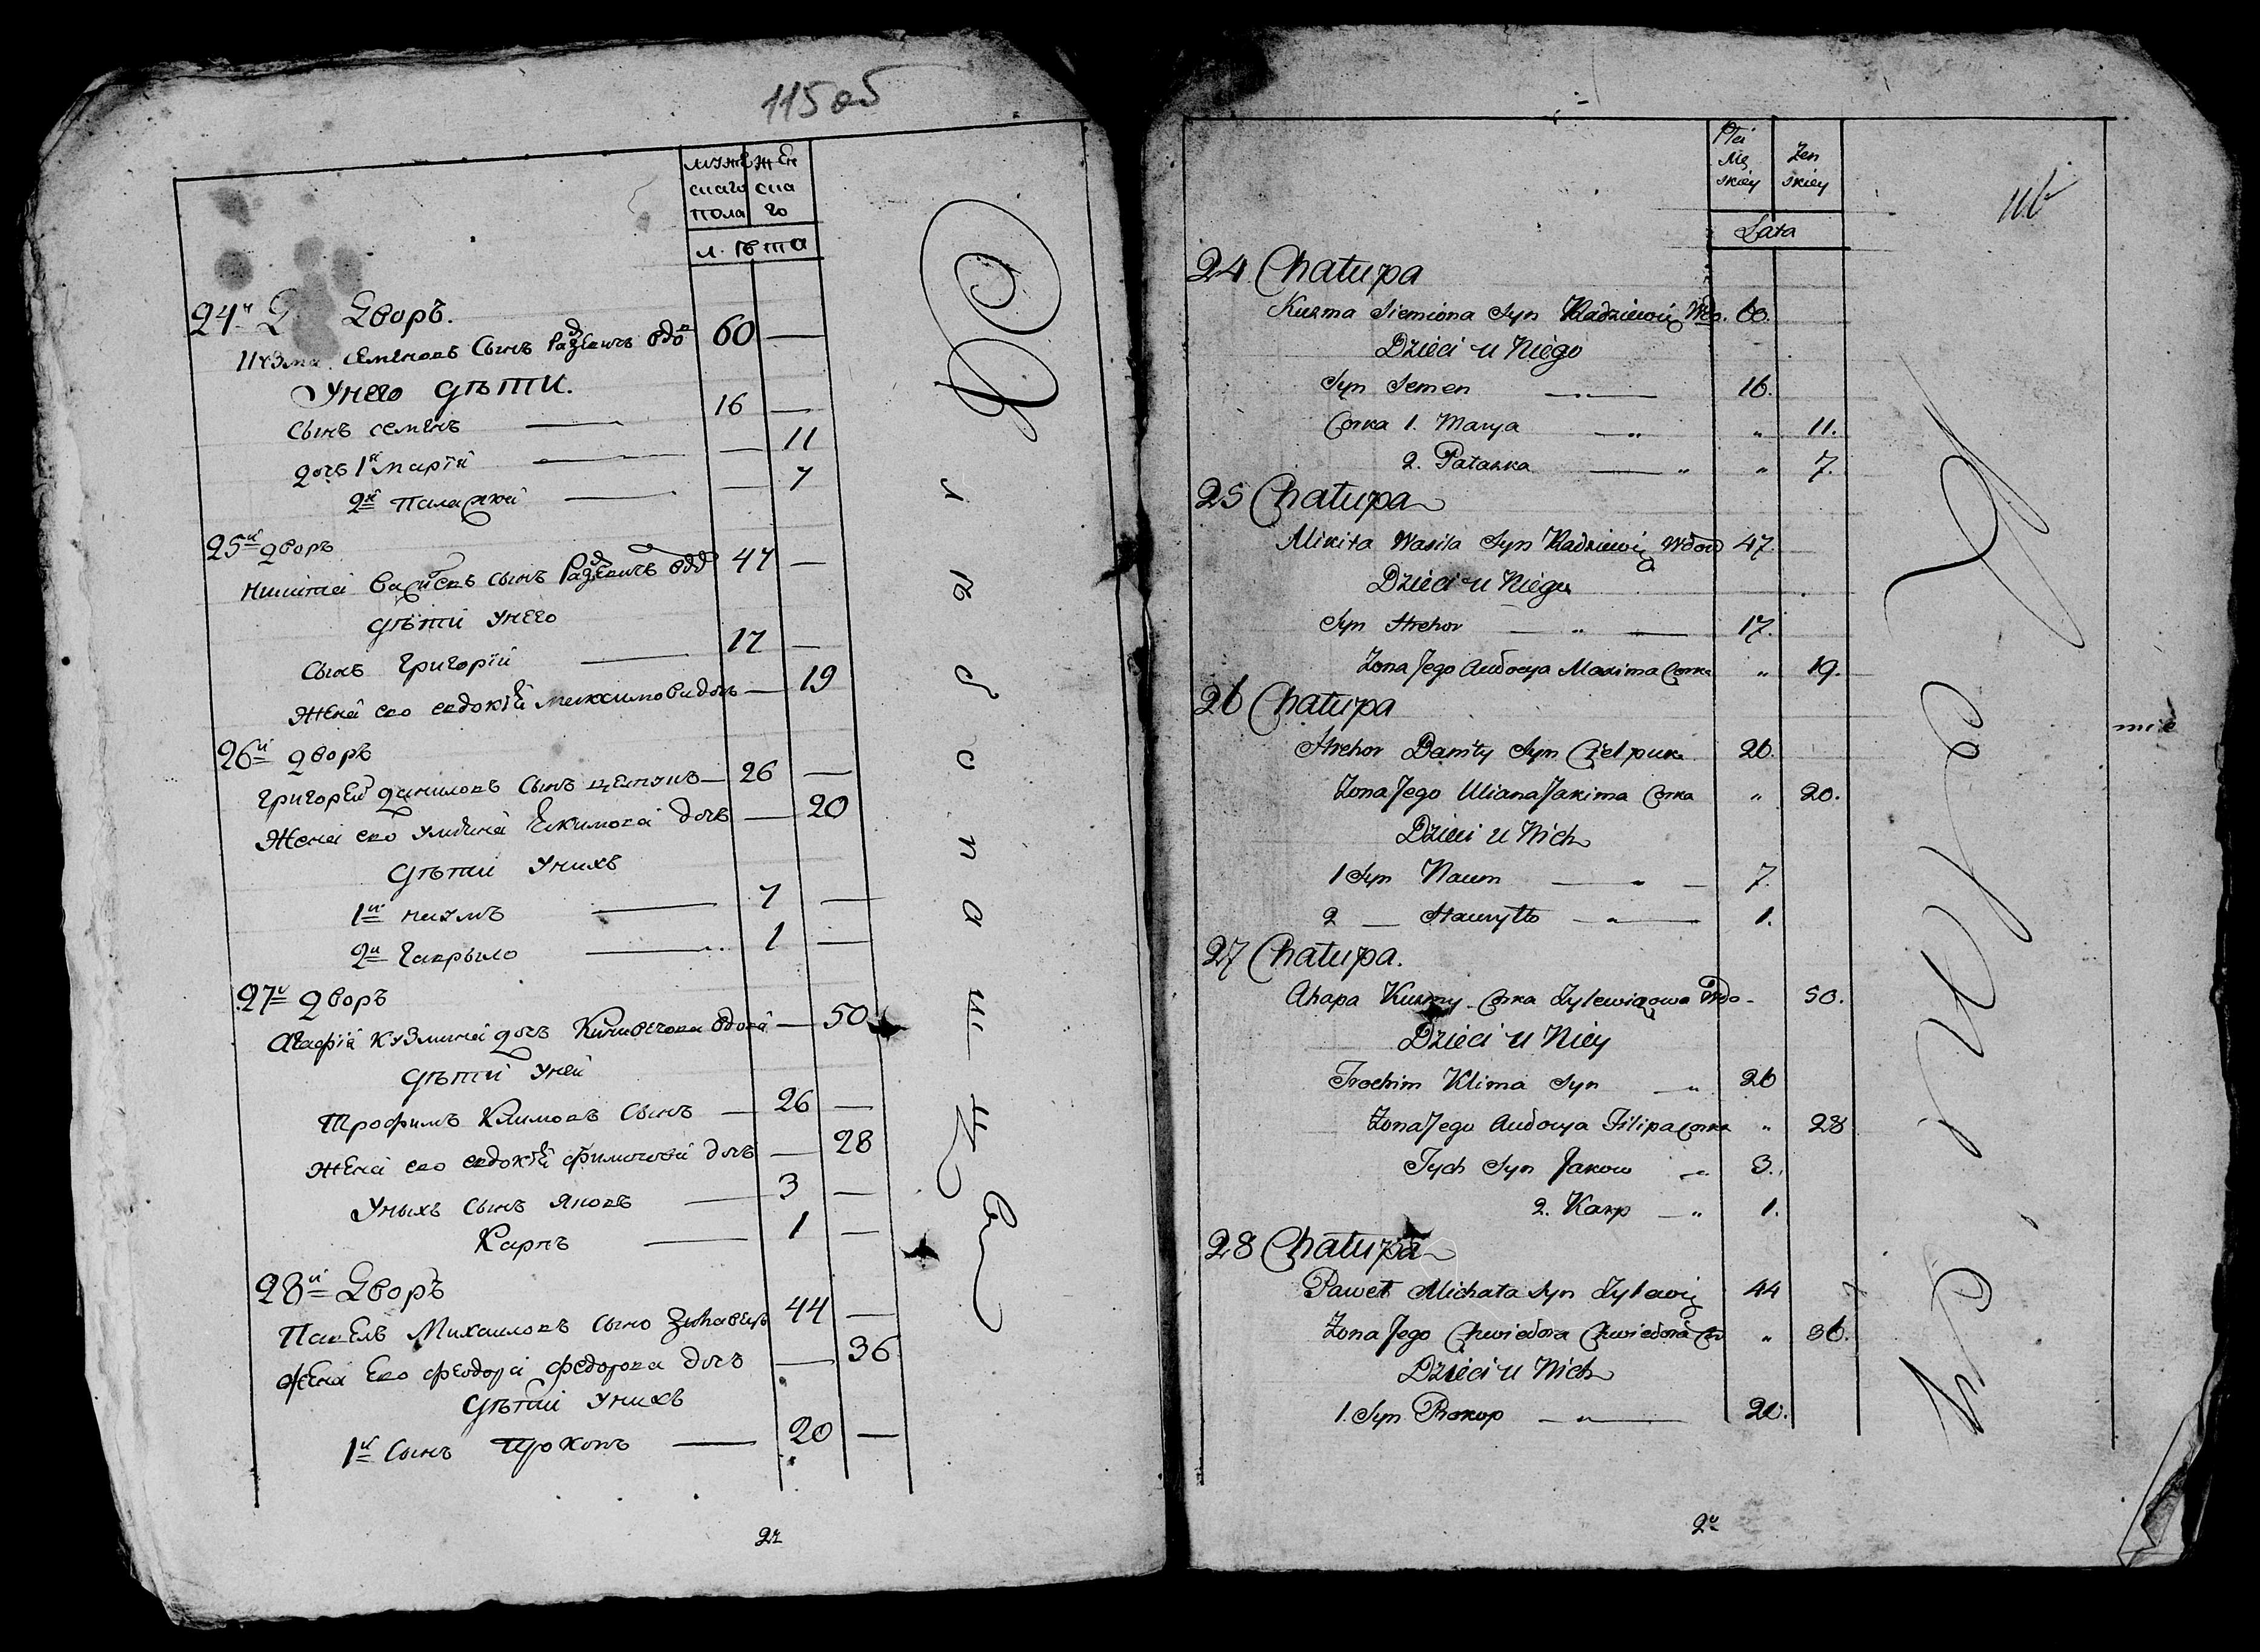 115 об
мужескаго пола
женскаго
лѣта
24й Дворъ.
Кузма Семеновъ Сынъ Радзевичъ вдо 60 —
У него дѣти.
Сынъ семенъ — 16 —
дочь 1я марія — — 11
2я Палажка — — 7
25й дворъ
Никита Васильевъ сынъ Радзевичъ вдо 47 —
дѣти у него
Сынъ Григорій — 17 —
Жена его евдокія максимова дочь — 19
26й дворъ
Григорей даниловъ Сынъ — 26 —
Жена его Ульяна Екимова дочь — 20
дѣти у нихъ
1й наумъ — 7 —
2й Гаврыло — 1 —
27й дворъ
Агафія Кузмина дочь вдова — 50
дѣти у ней
Трофимъ Климовъ Сынъ — 26 —
Жена его евдокія дочь — 28
У ныхъ Сынъ Яковъ — 3 —
Карпъ — 1 —
28й Дворъ
Павелъ Михаиловъ Сынъ 44 —
Жена Его Феодора Федорова дочь — 36
дѣтии у нихъ
1й Сынъ Прокопъ — 20 —
Płci Męskiey
Żenskiey
Lata
116
24 Chałupa
Kuzma Siemiona Syn Radziewicz Wdo. 60.
Dzieci u Niego
Syn Semen — 16.
Corka 1. Marya — „ 11.
2. Pałazka — „ „ 7.
25 Chałupa
Mikita Wasila Syn Radziewicz Wdow 47.
Dzieci u Niego
Syn Hrehor — „ — 17.
Zona Jego Audocya Maxima Corka „ 19.
26 Chałupa
Hrehor Daniły Syn Cielpuk 26.
Zona Jego Uliana Jakima Corka „ 20.
Dzieci u Nich
1 Syn Naum — „ — 7.
2 — Hauryłło — „ — 1.
27 Chałupa.
Ahapa Kuzmy Corka Zylewiczowa Wdo - 50.
Dzieci u Niey
Trochim Klima Syn „ 26
Zona Jego Audocya Filipa Corka „ 28
Tych Syn Jakow „ 3.
2. Karp — „ 1.
28 Chałupa
Paweł Michała Syn Zylewicz 44
Zona Jego Chwiedora Chwiedora Cor „ 36.
Dzieci u Nich
1. Syn Prokop — „ — 20.